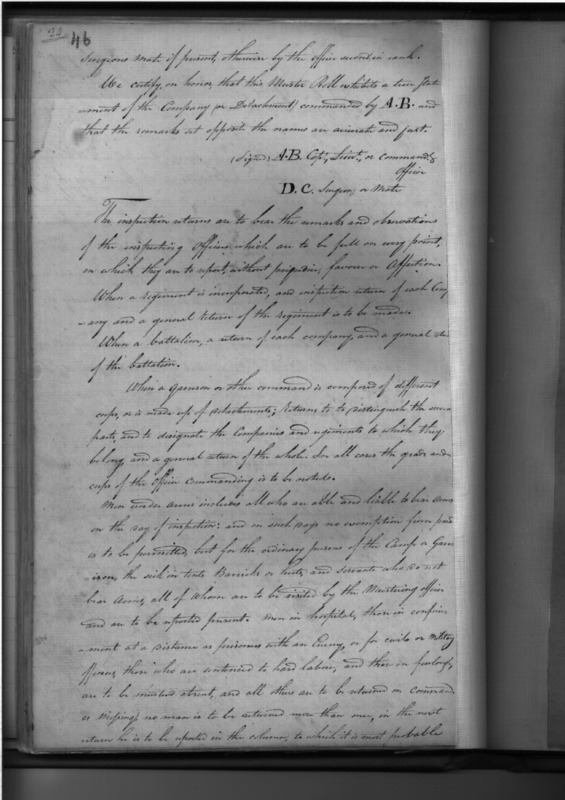 46
Surgeons mate if present, otherwise by the officer second in rank.
We certify, on honor, that this Muster Roll exhibits a true Stat
-ement of the Company (or Detachment) commanded by A.B. and
that the remarks set opposite the names are accurate and just.
(Signed) A.B. Capt., Lieut., or command.g
officer
D.C. Surgeon, or Mate
The inspection returns are to bear the remarks and observations
of the inspecting Officer, which are to be full on every point,
on which they are to report, without prejudice, favour or Affection.
When a regiment is incorporated, and inspection return of each Comp
-any and a general return of the regiment is to be made.
When a battalion, a return of each company, and a general
of the battalion.
When a garrison or other command is composed of different
corps, or is made up of detachments; returns to distinguish the several
parts, and to designate the Companies and regiments to which they
belong, and a general return of the whole. In all cases the grade and
corps of the officer commanding is to be noted.
Men under arms includes all who are able and liable to bear Arms
on the day of inspection: and on such days no exemption from
is to be permitted, but for the ordinary persons of the Camp or Garr
ison, the sick in tents Barricks or huts, and servants who do not
bear Arms, all of whom are to be visited by the Mustering officer
and are to be reported present. Men in hospital, those in confine
-ment at a distance as prisoners with an Enemy, or for civil or Military
offences, those who are sentenced to hard labour, and those on furlough,
are to be mustered absent, and all others are to be returned on command
or missing, no man is to be returned more than once, in the next
return he is to be reported in the column, to which it is most probable